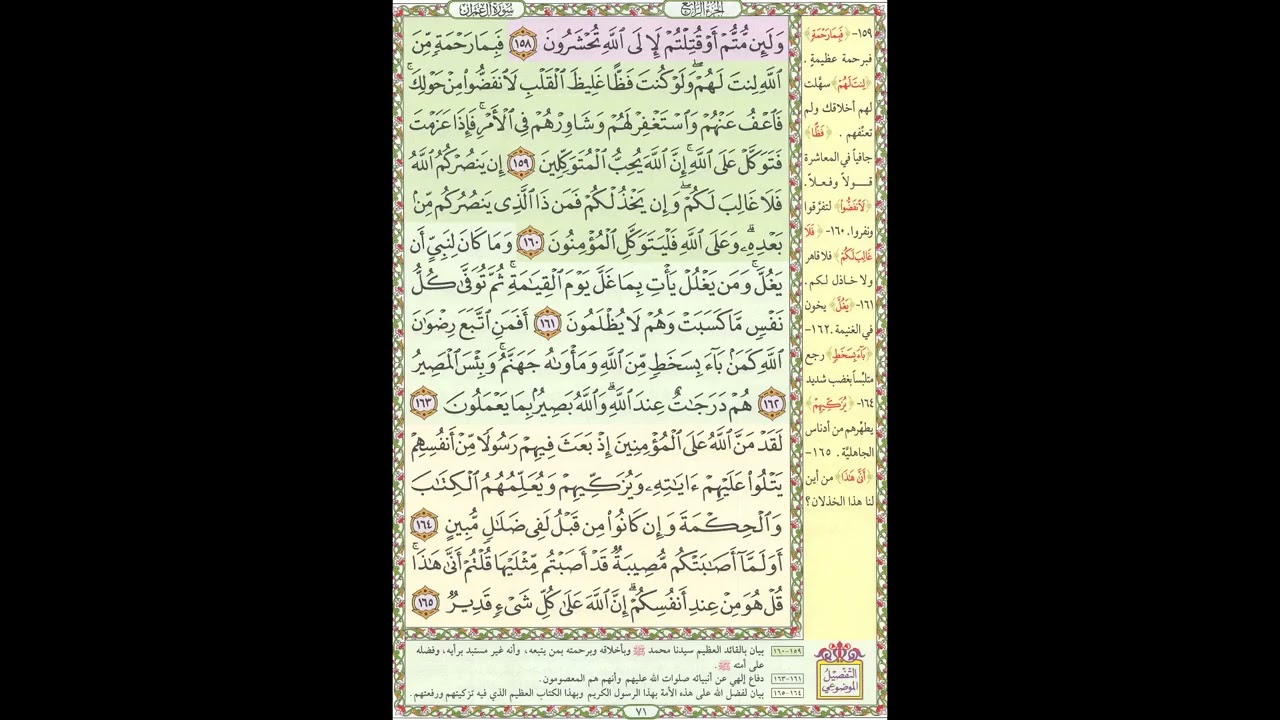 الجزء الرابع
سورة آل عمران
وَلَئِن مُّتُّمْ أَوْ قُتِلْتُمْ لَإِلَى ٱللَّهِ تُحْشَرُونَ ١٥٨ فَبِمَا رَحْمَةٍ مِّنَ
ٱللَّهِ لِنتَ لَهُمْ ۖ وَلَوْ كُنتَ فَظًّا غَلِيظَ ٱلْقَلْبِ لَٱنفَضُّوا۟ مِنْ حَوْلِكَ ۖ
فَٱعْفُ عَنْهُمْ وَٱسْتَغْفِرْ لَهُمْ وَشَاوِرْهُمْ فِى ٱلْأَمْرِ ۖ فَإِذَا عَزَمْتَ
فَتَوَكَّلْ عَلَى ٱللَّهِ ۚ إِنَّ ٱللَّهَ يُحِبُّ ٱلْمُتَوَكِّلِينَ ١٥٩ إِن يَنصُرْكُمُ ٱللَّهُ
فَلَا غَالِبَ لَكُمْ ۖ وَإِن يَخْذُلْكُمْ فَمَن ذَا ٱلَّذِى يَنصُرُكُم مِّنۢ
بَعْدِهِۦ ۗ وَعَلَى ٱللَّهِ فَلْيَتَوَكَّلِ ٱلْمُؤْمِنُونَ ١٦٠ وَمَا كَانَ لِنَبِىٍّ أَن
يَغُلَّ ۚ وَمَن يَغْلُلْ يَأْتِ بِمَا غَلَّ يَوْمَ ٱلْقِيَـٰمَةِ ۚ ثُمَّ تُوَفَّىٰ كُلُّ
نَفْسٍ مَّا كَسَبَتْ وَهُمْ لَا يُظْلَمُونَ ١٦١ أَفَمَنِ ٱتَّبَعَ رِضْوَٰنَ
ٱللَّهِ كَمَنۢ بَآءَ بِسَخَطٍ مِّنَ ٱللَّهِ وَمَأْوَىٰهُ جَهَنَّمُ ۚ وَبِئْسَ ٱلْمَصِيرُ
١٦٢ هُمْ دَرَجَـٰتٌ عِندَ ٱللَّهِ ۗ وَٱللَّهُ بَصِيرٌۢ بِمَا يَعْمَلُونَ ١٦٣
لَقَدْ مَنَّ ٱللَّهُ عَلَى ٱلْمُؤْمِنِينَ إِذْ بَعَثَ فِيهِمْ رَسُولًا مِّنْ أَنفُسِهِمْ
يَتْلُوا۟ عَلَيْهِمْ ءَايَـٰتِهِۦ وَيُزَكِّيهِمْ وَيُعَلِّمُهُمُ ٱلْكِتَـٰبَ
وَٱلْحِكْمَةَ وَإِن كَانُوا۟ مِن قَبْلُ لَفِى ضَلَـٰلٍ مُّبِينٍ ١٦٤
أَوَلَمَّآ أَصَـٰبَتْكُم مُّصِيبَةٌ قَدْ أَصَبْتُم مِّثْلَيْهَا قُلْتُمْ أَنَّىٰ هَـٰذَا ۖ
قُلْ هُوَ مِنْ عِندِ أَنفُسِكُمْ ۗ إِنَّ ٱللَّهَ عَلَىٰ كُلِّ شَىْءٍ قَدِيرٌ ١٦٥
١٥٩- ﴿فَبِمَا رَحْمَةٍ﴾
فبرحمة عظيمةٍ .
﴿لِنتَ لَهُمْ﴾ سهَّلت
لهم أخلاقك ولم
تعنِّفهم . ﴿فَظًّا﴾
جافياً في المعاشرة
قولاً وفعلاً .
﴿لَٱنفَضُّوا۟﴾ لتفرّقوا
ونفروا. ١٦٠- ﴿فَلَا
غَالِبَ لَكُمْ﴾ فلا قاهر
ولا خاذل لكم .
١٦١- ﴿يَغُلَّ﴾ يخون
في الغنيمة . ١٦٢-
﴿بَآءَ بِسَخَطٍ﴾ رجع
متلبِّساً بغضب شديد
١٦٤- ﴿يُزَكِّيهِمْ﴾
يطهِّرهم من أدناس
الجاهليَّة . ١٦٥-
﴿أَنَّىٰ هَـٰذَا﴾ من أين
لنا هذا الخذلان؟
التفصيل
الموضوعي
١٥٩-١٦٠ بيان بالقائد العظيم سيدنا محمد ﷺ وبأخلاقه وبرحمته بمن يتبعه، وأنه غير مستبد برأيه، وفضله
على أمته ﷺ .
١٦١-١٦٣ دفاع إلهي عن أنبيائه صلوات الله عليهم وأنهم هم المعصومون.
١٦٤-١٦٥ بيان لفضل الله على هذه الأمة بهذا الرسول الكريم وبهذا الكتاب العظيم الذي فيه تزكيتهم ورفعتهم.
٧١